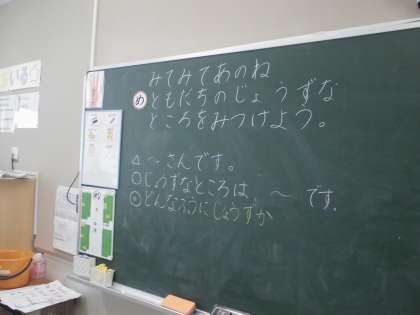 みてみてあのね
め ともだちのじょうずな
ところをみつけよう。
△ 〜さんです。
○じょうずなところは、〜です。
◎どんなふうにじょうずか